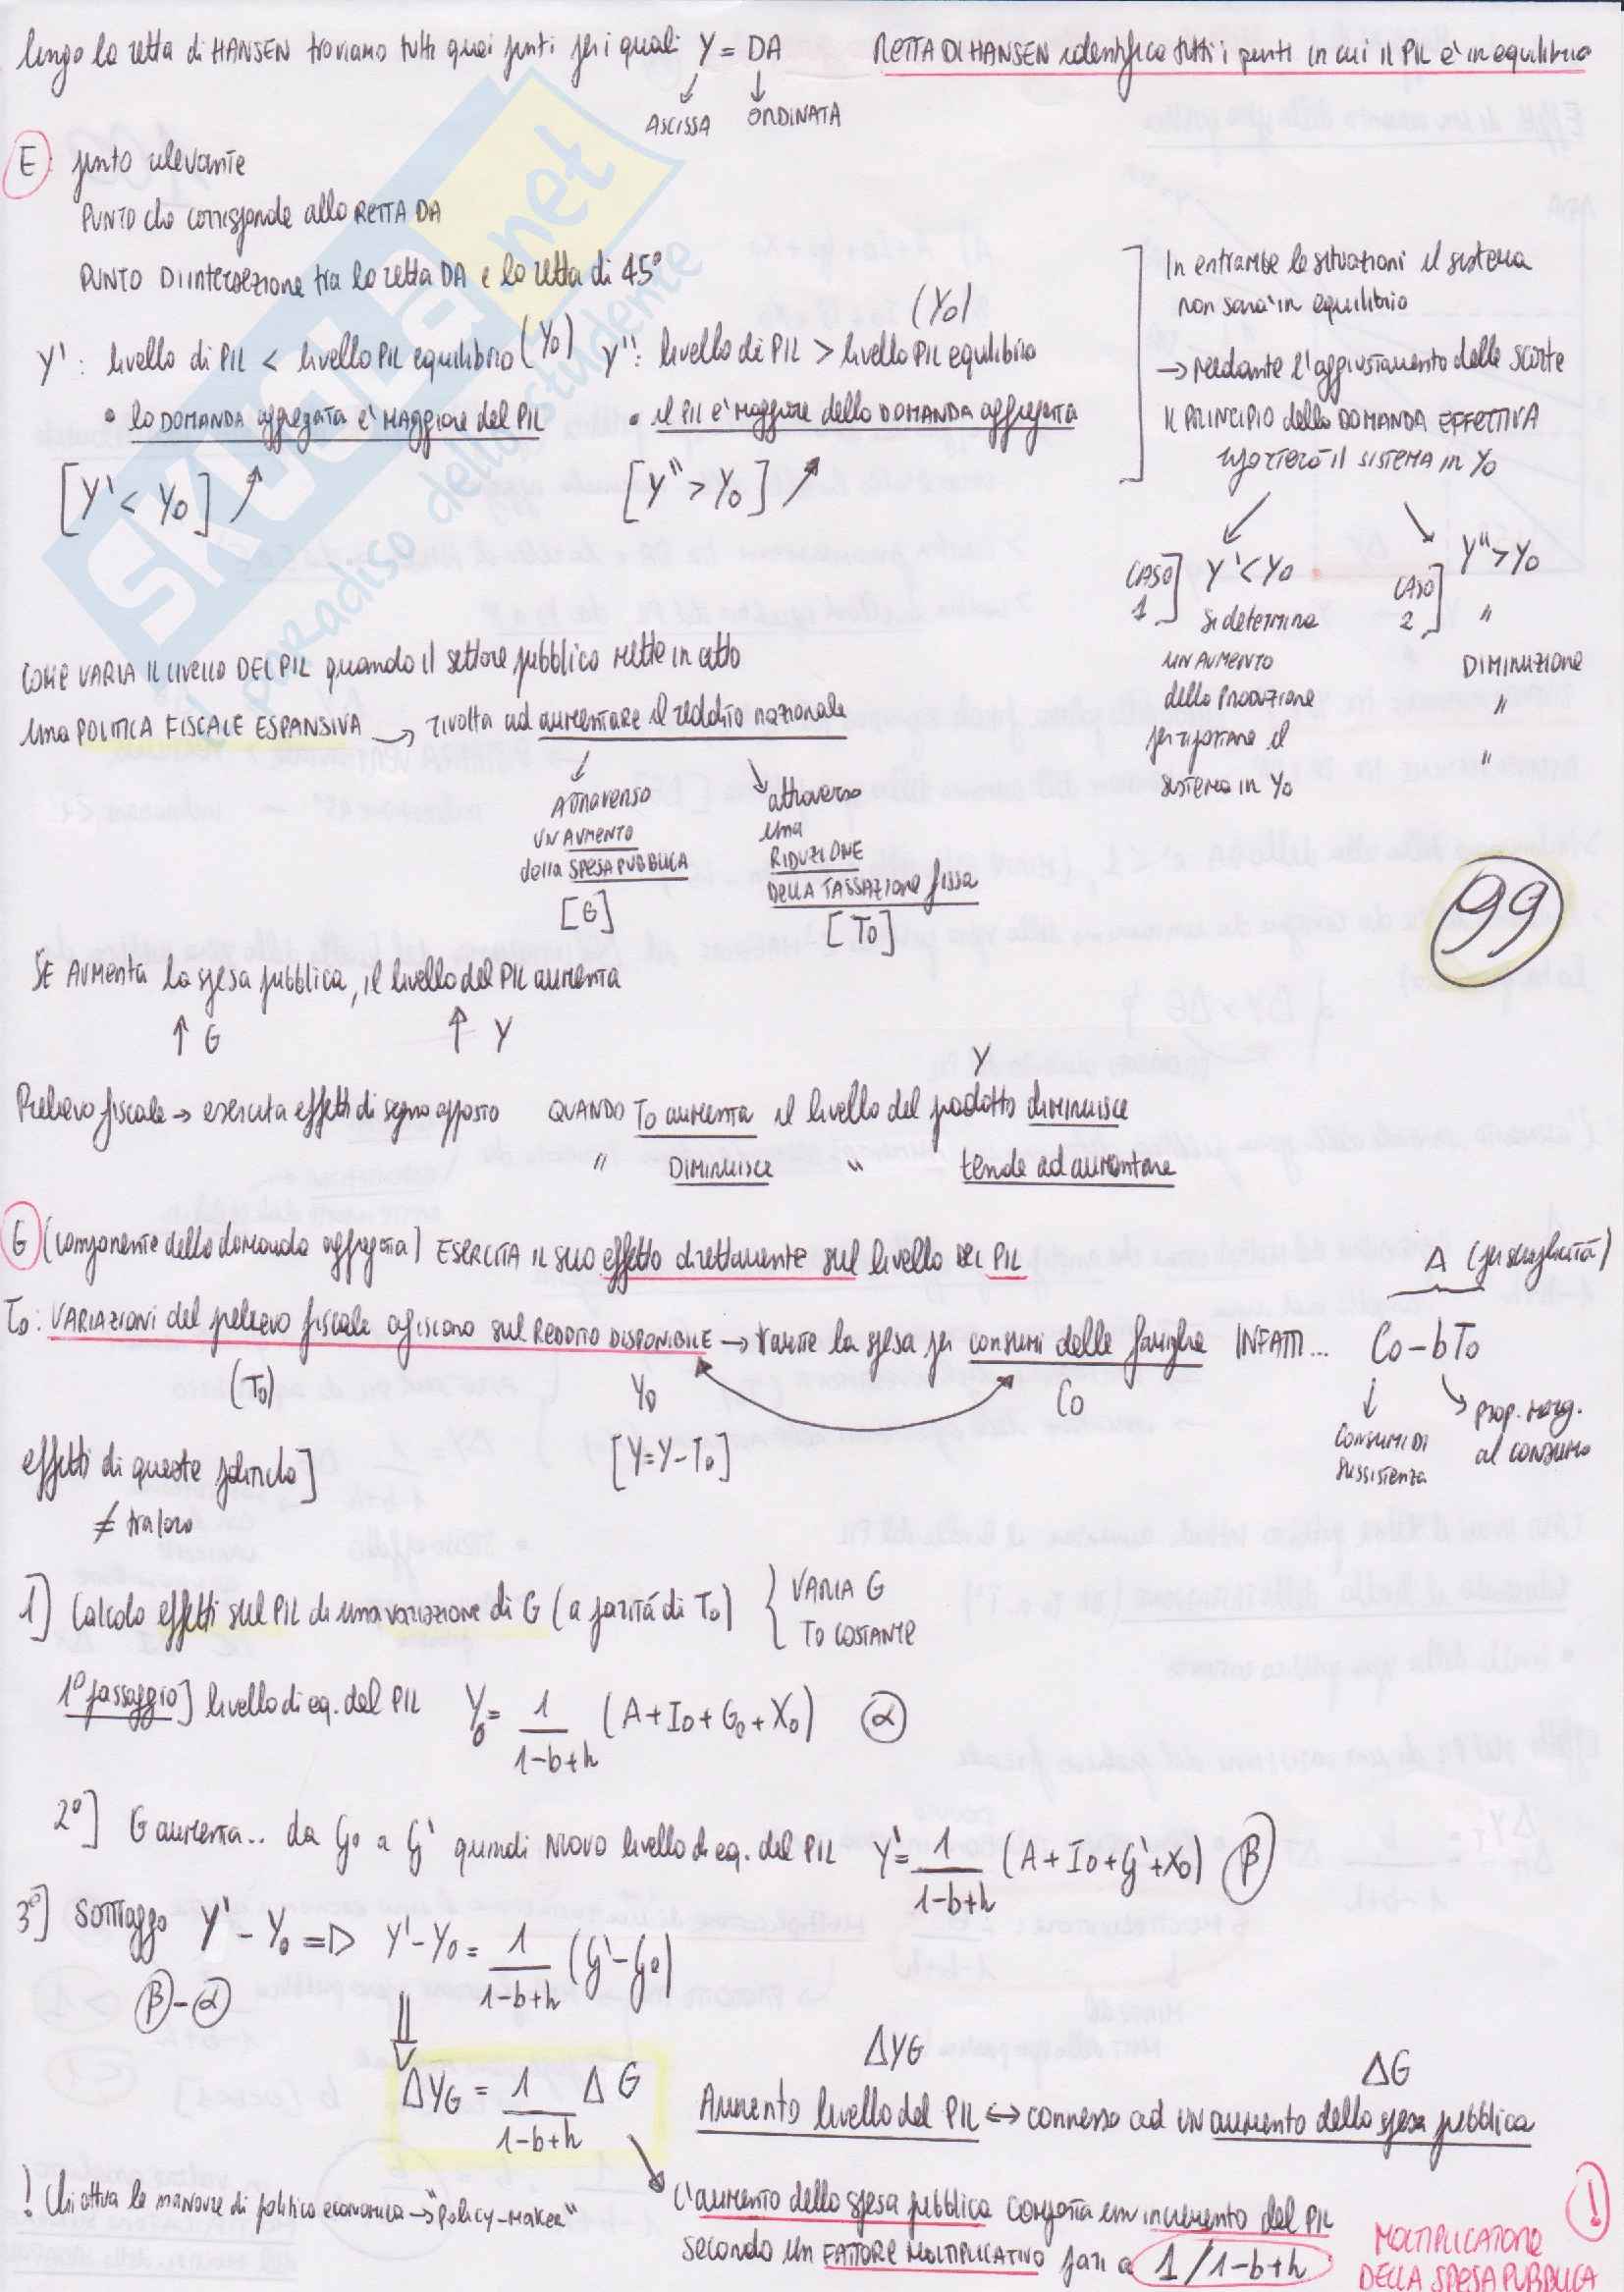 lungo la retta di HANSEN troviamo tutti quei punti per i quali Y = DA
ASCISSA ORDINATA
RETTA DI HANSEN identifica tutti i punti in cui il PIL è in equilibrio
E: punto rilevante
PUNTO che corrisponde alla RETTA DA
PUNTO DI intersezione tra la retta DA e la retta di 45°
Y' : livello di PIL < livello PIL equilibrio (Y0)
• la DOMANDA aggregata è MAGGIORE del PIL
[Y' < Y0]
(Y0)
Y'': livello di PIL > livello PIL equilibrio
• il PIL è maggiore della DOMANDA aggregata
[Y'' > Y0]
In entrambe le situazioni il sistema
non sarà in equilibrio
→ mediante l'aggiustamento delle scorte
IL PRINCIPIO della DOMANDA EFFETTIVA
riporterà il SISTEMA in Y0
CASO 1] Y' < Y0
si determina
UN AUMENTO
della PRODUZIONE
per riportare il
SISTEMA in Y0
CASO 2] Y'' > Y0
"
DIMINUZIONE
"
"
COME VARIA IL LIVELLO DEL PIL quando il settore pubblico mette in atto
una POLITICA FISCALE ESPANSIVA → rivolta ad aumentare il reddito nazionale
ATTRAVERSO
UN AUMENTO
della SPESA PUBBLICA
[G]
attraverso
una
RIDUZIONE
DELLA TASSAZIONE fissa
[T0]
99
SE AUMENTA la spesa pubblica, il livello del PIL aumenta
↑ G ↑ Y
Y
Prelievo fiscale → esercita effetti di segno opposto QUANDO T0 aumenta il livello del prodotto diminuisce
" DIMINUISCE " tende ad aumentare
G (componente della domanda aggregata) ESERCITA IL SUO effetto direttamente sul livello DEL PIL
A (per semplicità)
T0: VARIAZIONI del prelievo fiscale agiscono sul REDDITO DISPONIBILE → tramite la spesa per consumi delle famiglie INFATTI... C0 - bT0
(T0) Y0 C0
[Y=Y-T0]
CONSUMI DI
SUSSISTENZA
prop. marg.
al consumo
effetti di queste politiche]
≠ tra loro
1] Calcolo effetti sul PIL di una variazione di G (a parità di T0) { VARIA G
T0 COSTANTE
1° passaggio] livello di eq. del PIL Y0 = 1/(1-b+h) (A+I0+G0+X0) α
2°] G aumenta.. da G0 a G' quindi NUOVO livello di eq. del PIL Y' = 1/(1-b+h) (A+I0+G'+X0) β
3°] SOTTRAGGO Y' - Y0 => Y' - Y0 = 1/(1-b+h) (G'-G0)
β - α
ΔYG = 1/(1-b+h) ΔG
ΔYG ΔG
Aumento livello del PIL ↔ connesso ad UN aumento della spesa pubblica
! Chi attua le manovre di politica economica → "Policy-Maker"
L'aumento della spesa pubblica comporta un incremento del PIL
secondo un FATTORE MOLTIPLICATIVO pari a 1/1-b+h
!
MOLTIPLICATORE
DELLA SPESA PUBBLICA
SKUOLA.net
il paradiso dello studente